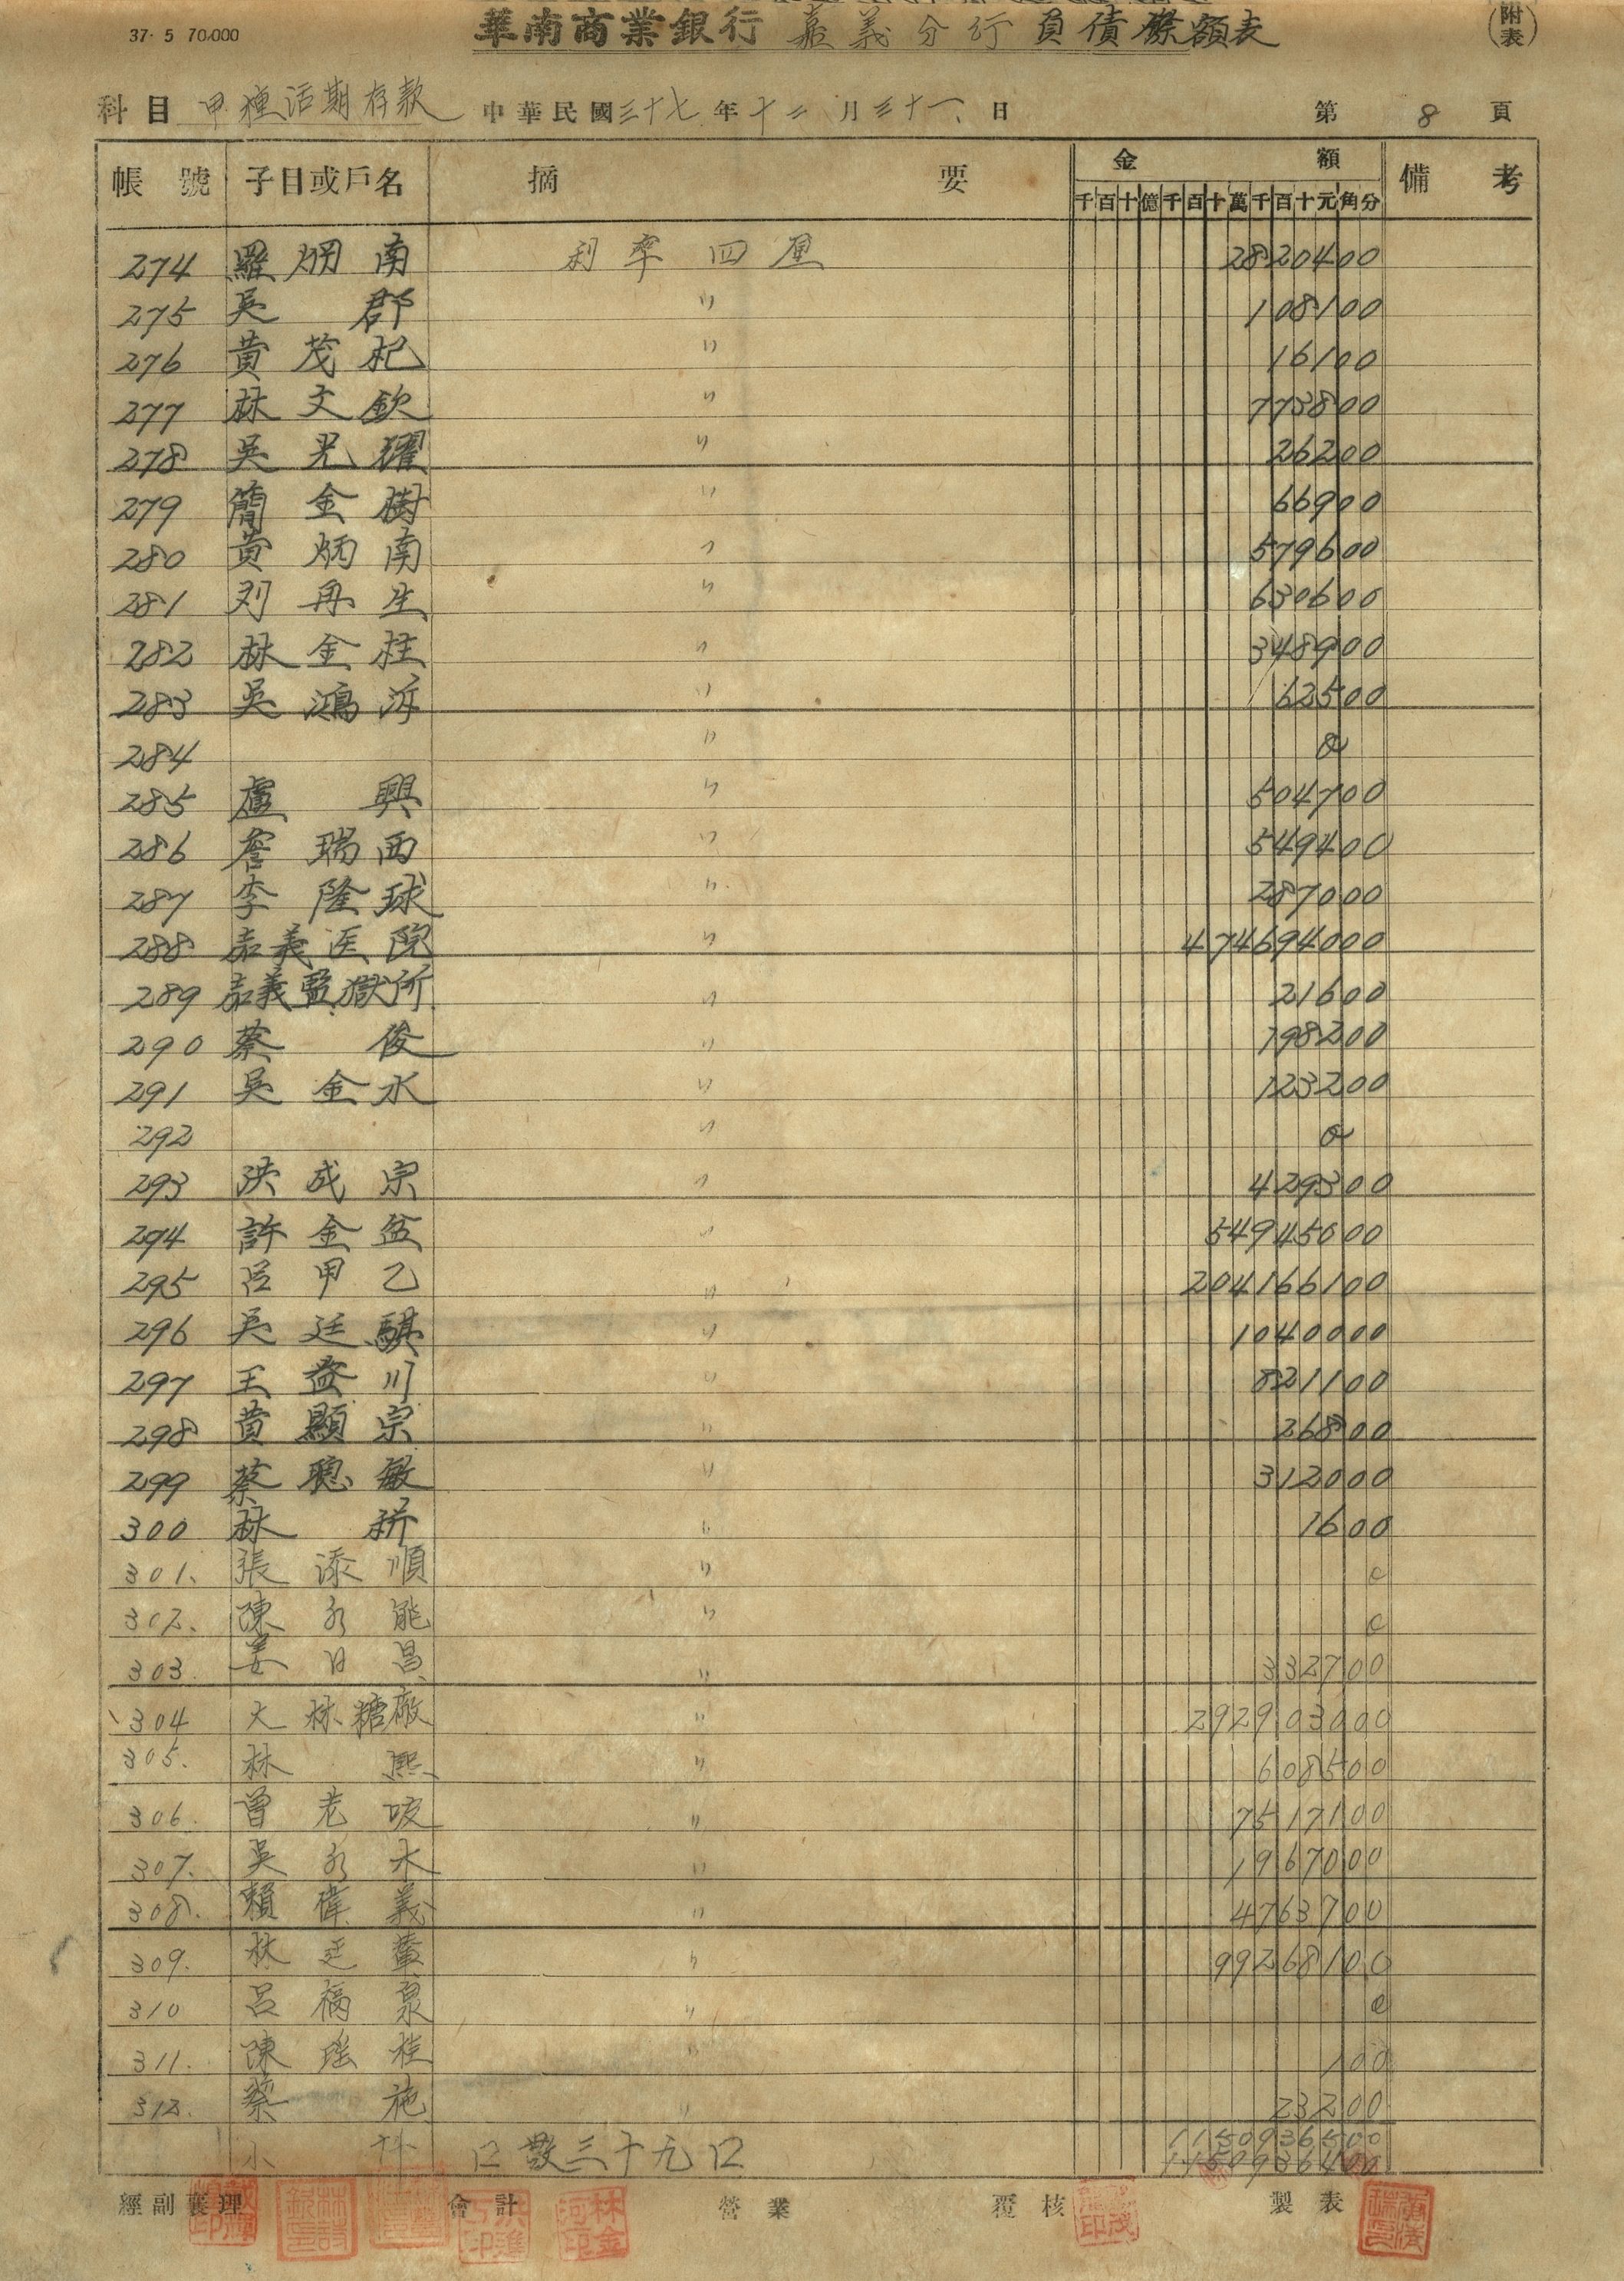 37. 5 70,000
華南商業銀行 嘉義分行負債餘額表 (附表)
科目 甲種活期存款 中華民國三十七年十二月三十一日 第 8 頁
帳號 子目或戶名 摘要 金額 備考
千百十億千百十萬千百十元角分
274 羅炳南 利率四厘 2820400
275 吳郡 〃 108100
276 黃茂杞 〃 16100
277 林文欽 〃 773800
278 吳光耀 〃 26200
279 簡金樹 〃 66900
280 黃炳南 〃 579600
281 刘再生 〃 630600
282 林金柱 〃 348900
283 吳鴻 〃 62500
284 〃 0
285 盧興 〃 504700
286 詹瑞西 〃 549400
287 李隆球 〃 287000
288 嘉義医院 〃 474694000
289 嘉義監獄所 〃 21600
290 蔡俊 〃 198200
291 吳金水 〃 123200
292 〃 0
293 洪成宗 〃 429300
294 許金盆 〃 54945600
295 呂甲乙 〃 204166100
296 吳廷騏 〃 1040000
297 王益川 〃 821100
298 黃顯宗 〃 26800
299 蔡聰敏 〃 312000
300 林 〃 1600
301. 張添順 〃 0
302. 陳永能 〃 0
303. 姜日昌 〃 332700
304 大林糖廠 〃 292903000
305. 林熙 〃 608500
306. 曾老 〃 7517100
307. 吳永木 〃 1967000
308. 賴偉義 〃 4763700
309. 林廷 〃 99268100
310 呂福泉 〃 0
311. 陳瑤桂 〃 100
312. 蔡施 〃 23200
小計 口數三十九口 1150936500
1150936400
經副襄理 會計 營業 覆核 製表